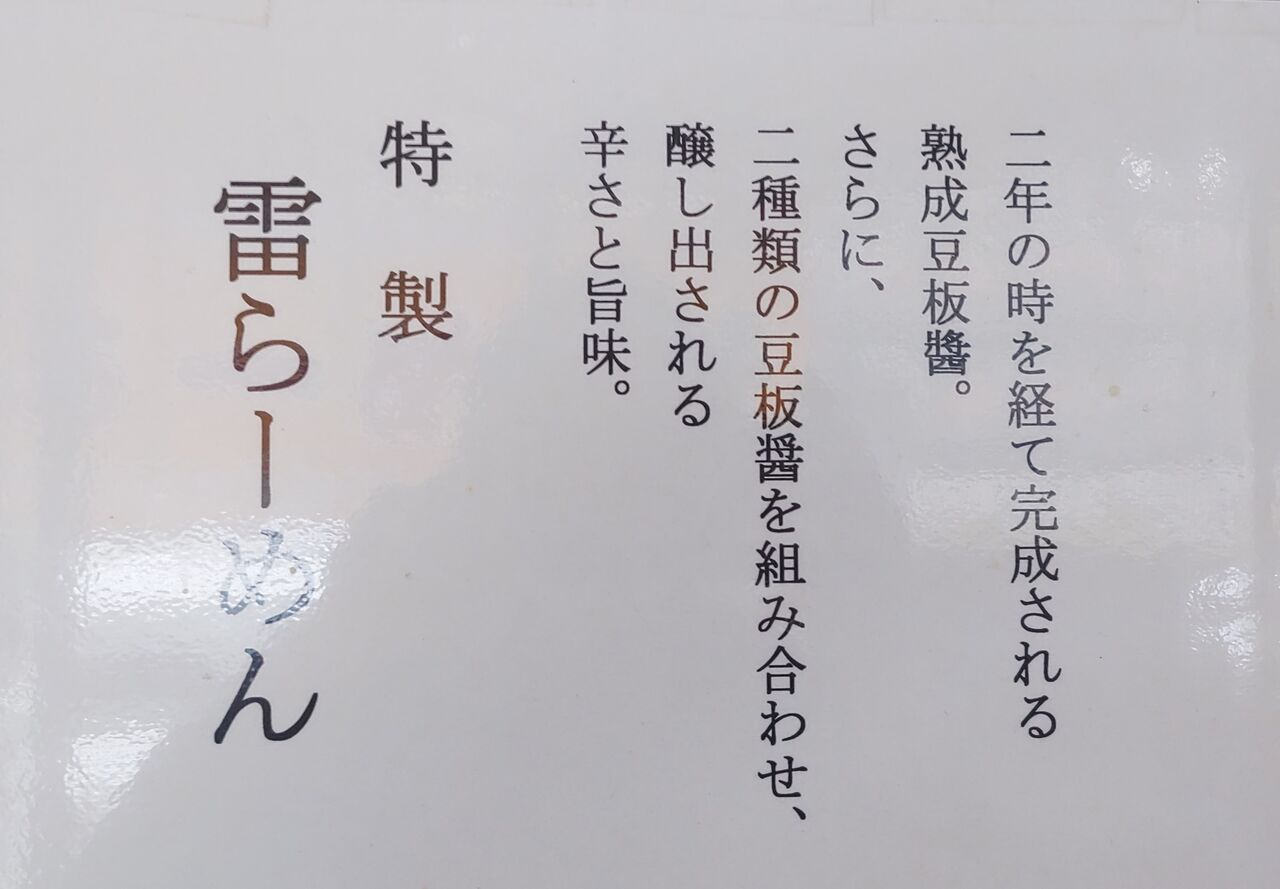 二年の時を経て完成される
熟成豆板醬。
さらに、
二種類の豆板醤を組み合わせ、
醸し出される
辛さと旨味。
特製
雷らーめん